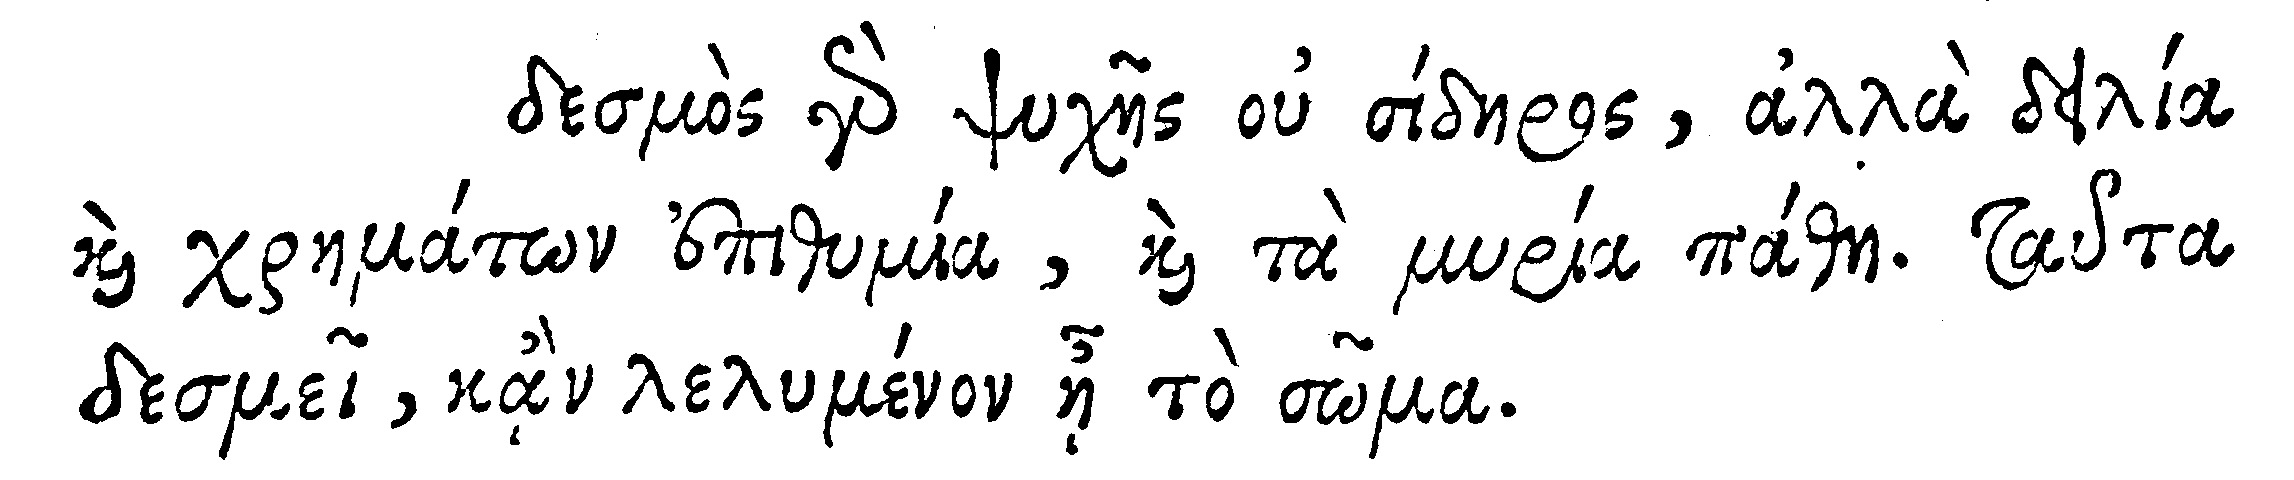 δεσμὸς γὰρ ψυχῆς οὐ σίδηρος, ἀλλὰ δειλία
καὶ χρημάτων ἐπιθυμία, καὶ τὰ μυρία πάθη. ταῦτα
δεσμεῖ, κᾂν λελυμένον ᾖ τὸ σῶμα.